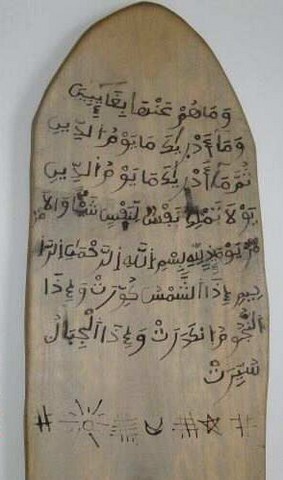 وَمَا هُمْ عَنْهَا بِغَآئِبِينَ
وَمَآ أَدْرَىٰكَ مَا يَوْمُ الدِّينِ
ثُمَّ مَآ أَدْرَىٰكَ مَا يَوْمُ الدِّينِ
يَوْ لَا تَمْلِكُ نَفْسٌ لِنَفْسٍ شَيْئًا وَالَا
مْرُ يَوْمَئِذٍ لِلهِ بِسْمِ اللهِ الرَّحْمَٰنِ الرَّ
حِيمِ إِذَا الشَّمْسُ كُوِّرَتْ وَإِذَا
النُّجُومُ انْكَدَرَتْ وَإِذَا الْجِبَالُ
سُيِّرَتْ